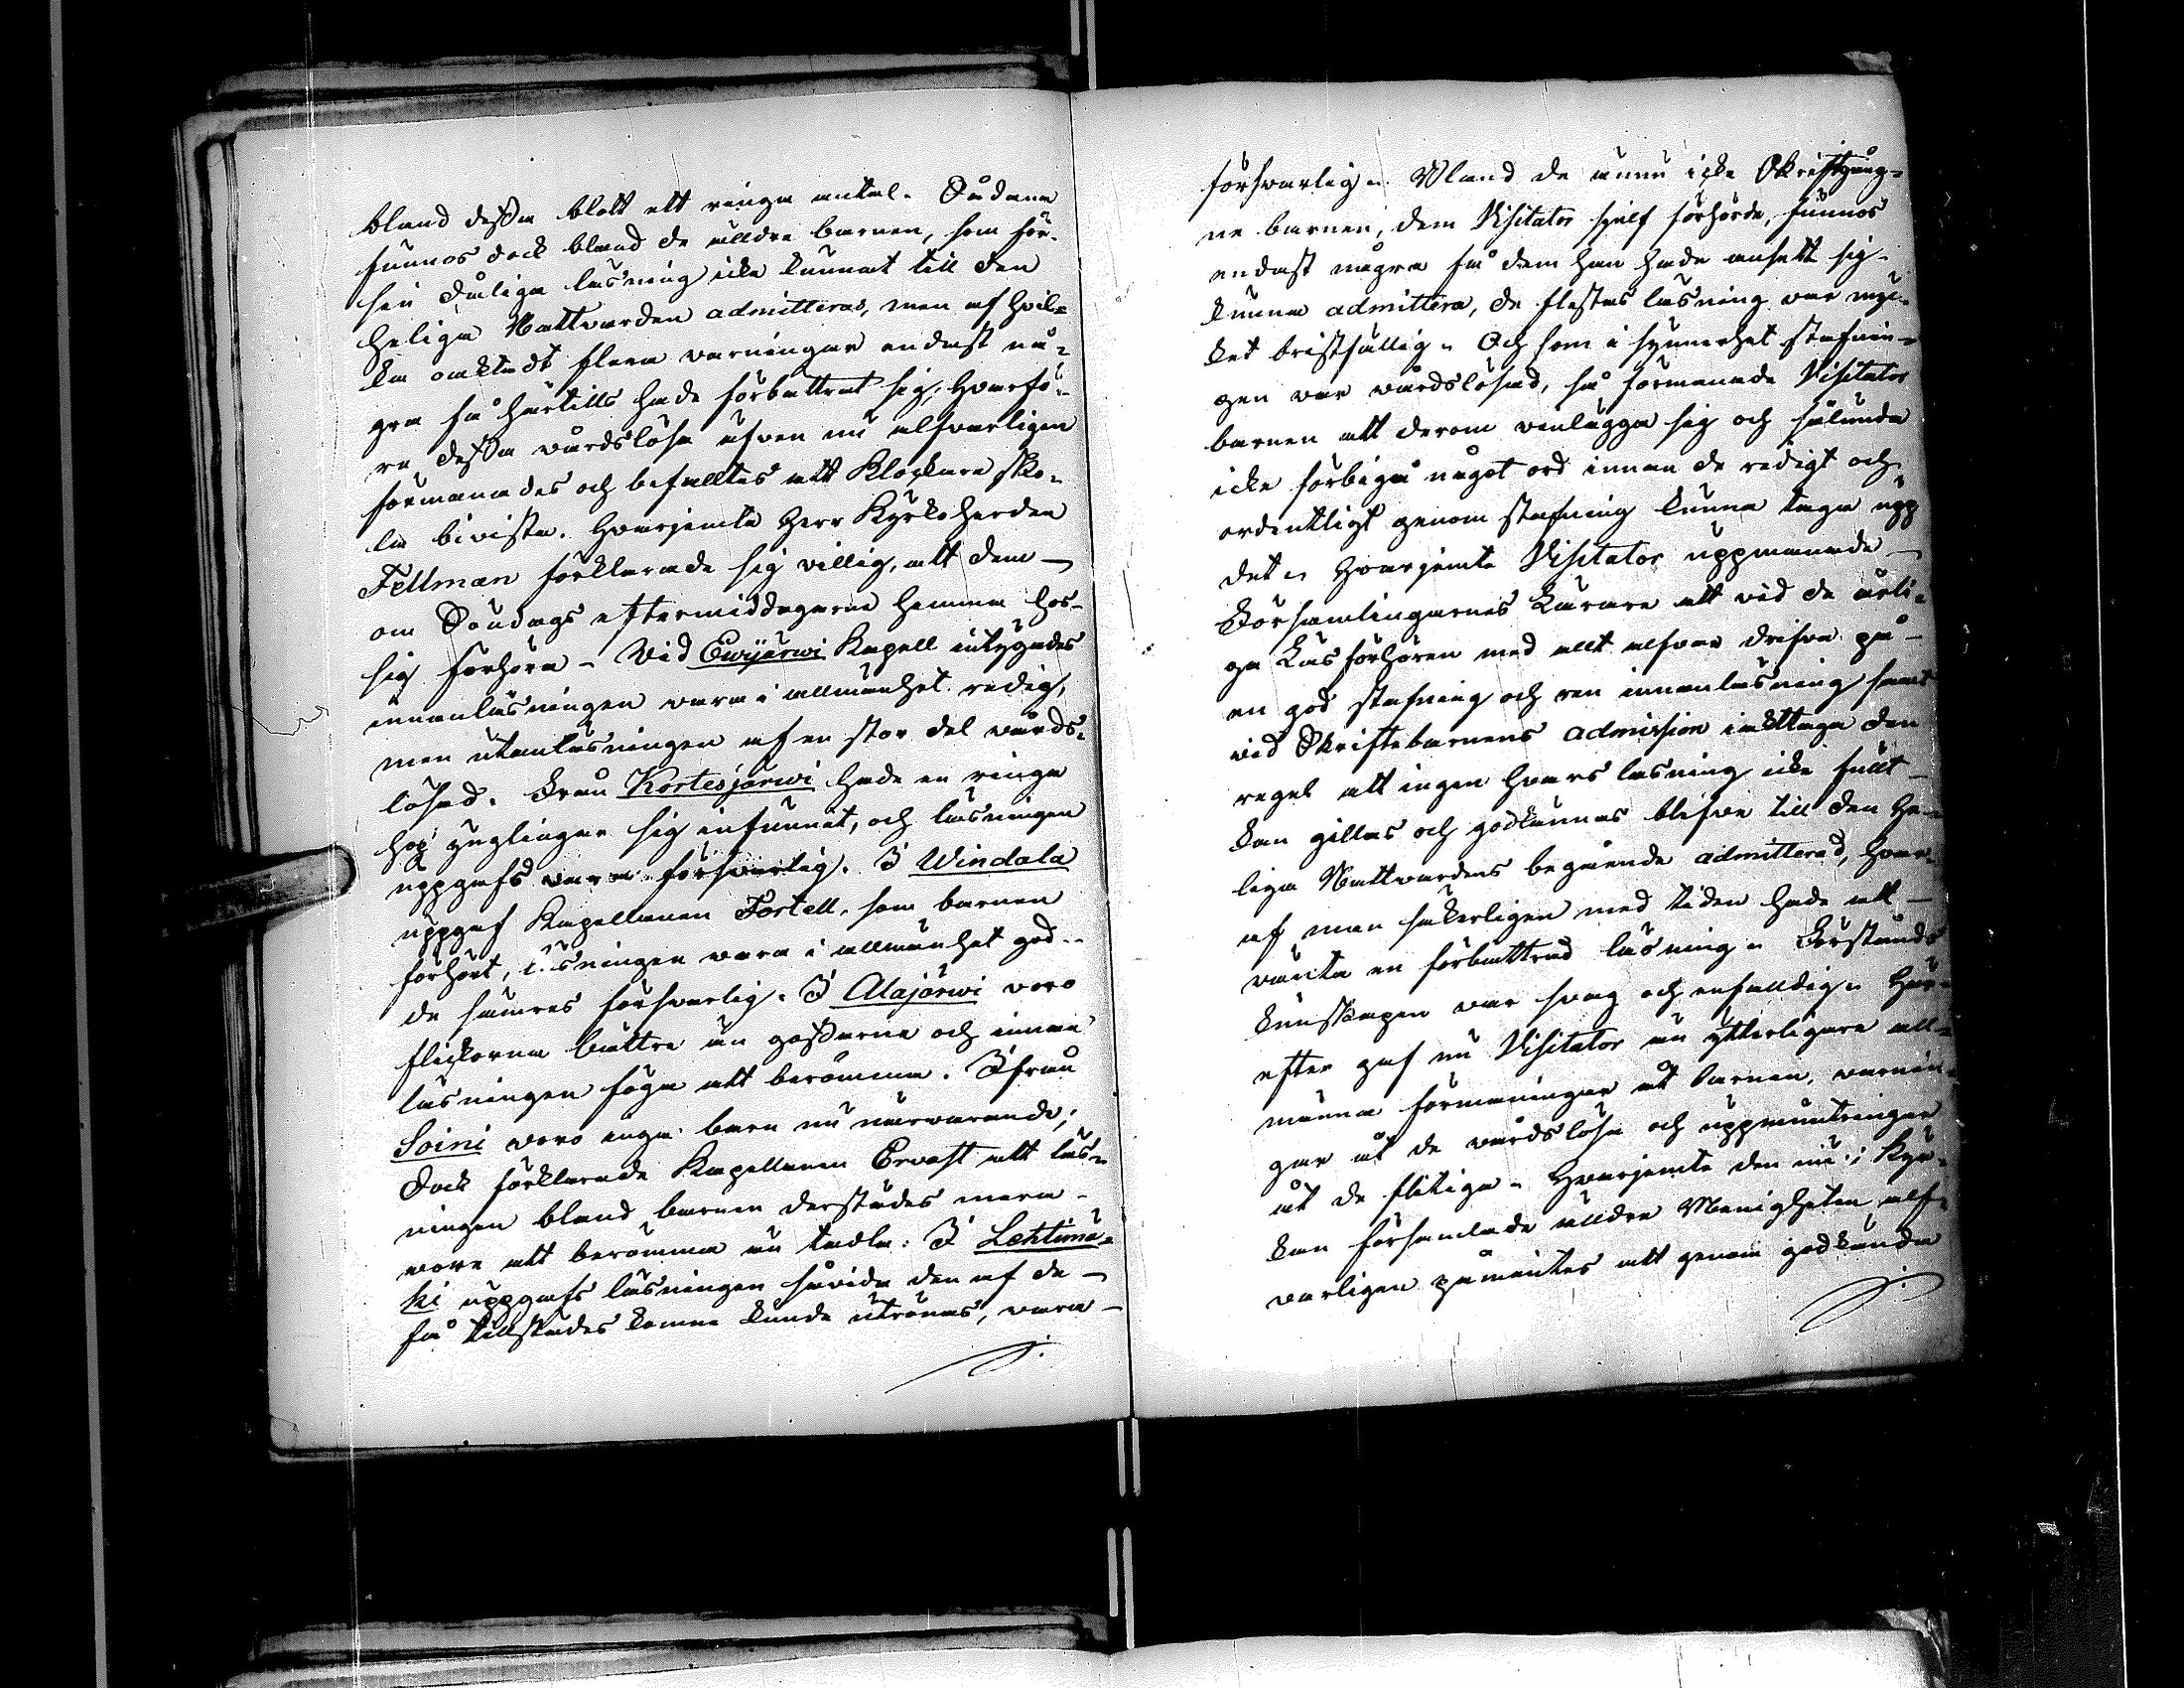 bland dessa blott ett ringa antal. Sådane
funnos dock bland de äldre barnen, som för
sin dåliga läsning icke kunnat till den
heliga Nattvarden admitteras, men af hvil-
ka oaktadt flera varningar endast nå-
gra få härtills hade förbättrat sig; hvarfö-
re dessa vårdslösa äfven nu alfvarligen
förmanades och befalltes att Klockare sko-
la bivista. Hvarjemte Herr Kyrkoherden
Fellman förklarade sig villig, att dem
om Söndags eftermiddagarne hemma hos
sig förhöra - Vid Ewijärwi Kapell intygades
innanläsningen vara i allmänhet redig,
men utanläsningen af en stor del vårds-
lösad. Från Kortesjärwi hade en ringa
hop ynglingar sig infunnit, och läsningen
uppgafs vara försvarlig. I Windala
uppgaf Kapellanen Fortell, som barnen
förhört, läsningen vara i allmänhet god
de sämres försvarlig. I Alajärwi voro
flickorna bättre än gossarne och innan
läsningen föga att berömma. Ifrån
Soini voro inga barn nu närvarande;
Dock förklarade Kapellanen Ervast att läs-
ningen bland barnen derstädes mera
vore att berömma än tadla: I Lehtimä-
ki uppgafs läsningen såvida den af de
få tillstädes komne kunde utrönas, vara
försvarlig. Bland de ännu icke Skriftgång-
ne barnen, dem Visitator sjelf förhörde, funnos
endast några få dem han hade ansett sig
kunna admittera, de flestas läsning var myc-
ket bristfällig. Och som i synnerhet stafnin-
gen var vårdslösad, så förmanade Visitator
barnen att derom vinlägga sig och sålunda
icke förbigå något ord innan de redigt och
ordentligt genom stafning kunna taga upp
det. Hvarjemte Visitator uppmanade
Församlingarnes Lärare att vid de årli-
ga Läsförhören med allt alfvar drifva på
en god stafning och ren innanläsning samt
vid Skriftebarnens admission iakttaga den
regel att ingen hvars läsning icke fullt
kan gillas och godkännas blifve till den He-
liga Nattvardens begående admitterad, hvar-
af man säkerligen med tiden hade att
vänta en förbättrad läsning. Förstånds
kunskapen var svag och enfaldig. Här-
efter gaf nu Visitator än ytterligare all-
männa förmaningar åt barnen, varnin-
gar åt de vårdslösa och uppmuntringar
åt de flitiga. Hvarjemte den nu i Kyr-
kan församlade äldre Menigheten alf-
varligen påmintes att genom godkända